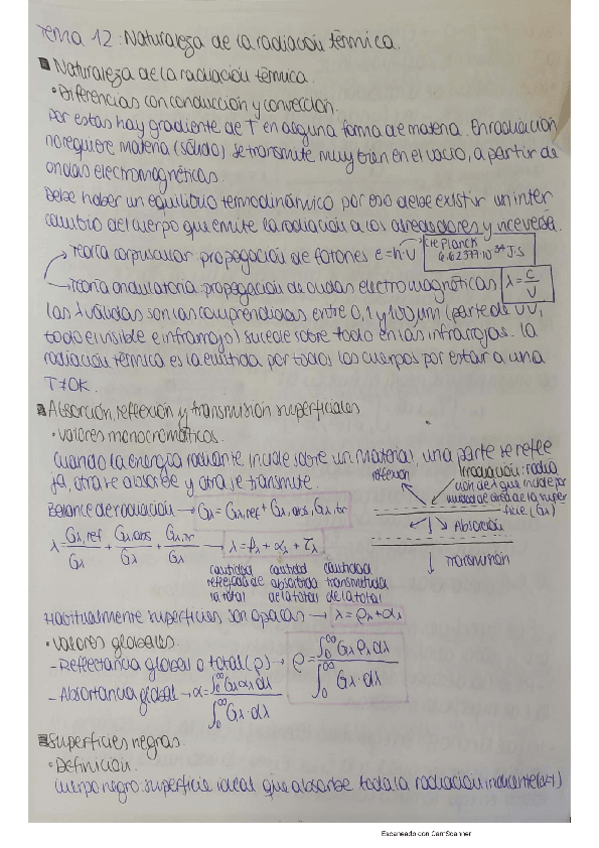 Tema 12: Naturaleza de la radiación térmica.
Naturaleza de la radiación térmica.
• Diferencias con conducción y convección.
Por estas hay gradiente de T en alguna forma de materia. En radiación
no requiere materia (sólido) se transmite muy bien en el vacío, a partir de
ondas electromagnéticas.
Debe haber un equilibrio termodinámico por eso debe existir un inter
cambio del cuerpo que emite la radiación a los alrededores y viceversa.
→ Teoría corpuscular: propagación de fotones e=h·ν cte Planck
6.6237·10⁻³⁴ J·s
→ Teoría ondulatoria: propagación de ondas electromagnéticas λ = c/ν
Las λ válidas son las comprendidas entre 0,1 y 100 μm (parte de UV,
todo el visible e infrarrojo) sucede sobre todo en las infrarrojas. La
radiación térmica es la emitida por todos los cuerpos por estar a una
T≠0K.
Absorción, reflexión y transmisión superficiales
• Valores monocromáticos.
Cuando la energía radiante incide sobre un material, una parte se refle
ja, otra se absorbe y otra se transmite.
reflexión
Irradiación: radia
ción de λ que incide por
unidad de área de la super
ficie (Gλ)
Absorción
Transmisión
Balance de radiación → Gλ = Gλ,ref + Gλ,abs + Gλ,tr
λ = Gλ,ref/Gλ + Gλ,abs/Gλ + Gλ,tr/Gλ → λ = ρλ + αλ + τλ
cantidad cantidad cantidad
reflejada de absorbida transmitida
la total de la total de la total
Habitualmente superficies son opacas → λ = ρλ + αλ
• Valores globales.
- Reflectancia global o total (ρ) → ρ = ∫₀^∞ Gλ ρλ dλ / ∫₀^∞ Gλ · dλ
- Absortancia global → α = ∫₀^∞ Gλ αλ dλ / ∫₀^∞ Gλ · dλ
Superficies negras.
• Definición.
Cuerpo negro: superficie ideal que absorbe toda la radiación incidente (α=1)
Escaneado con CamScanner